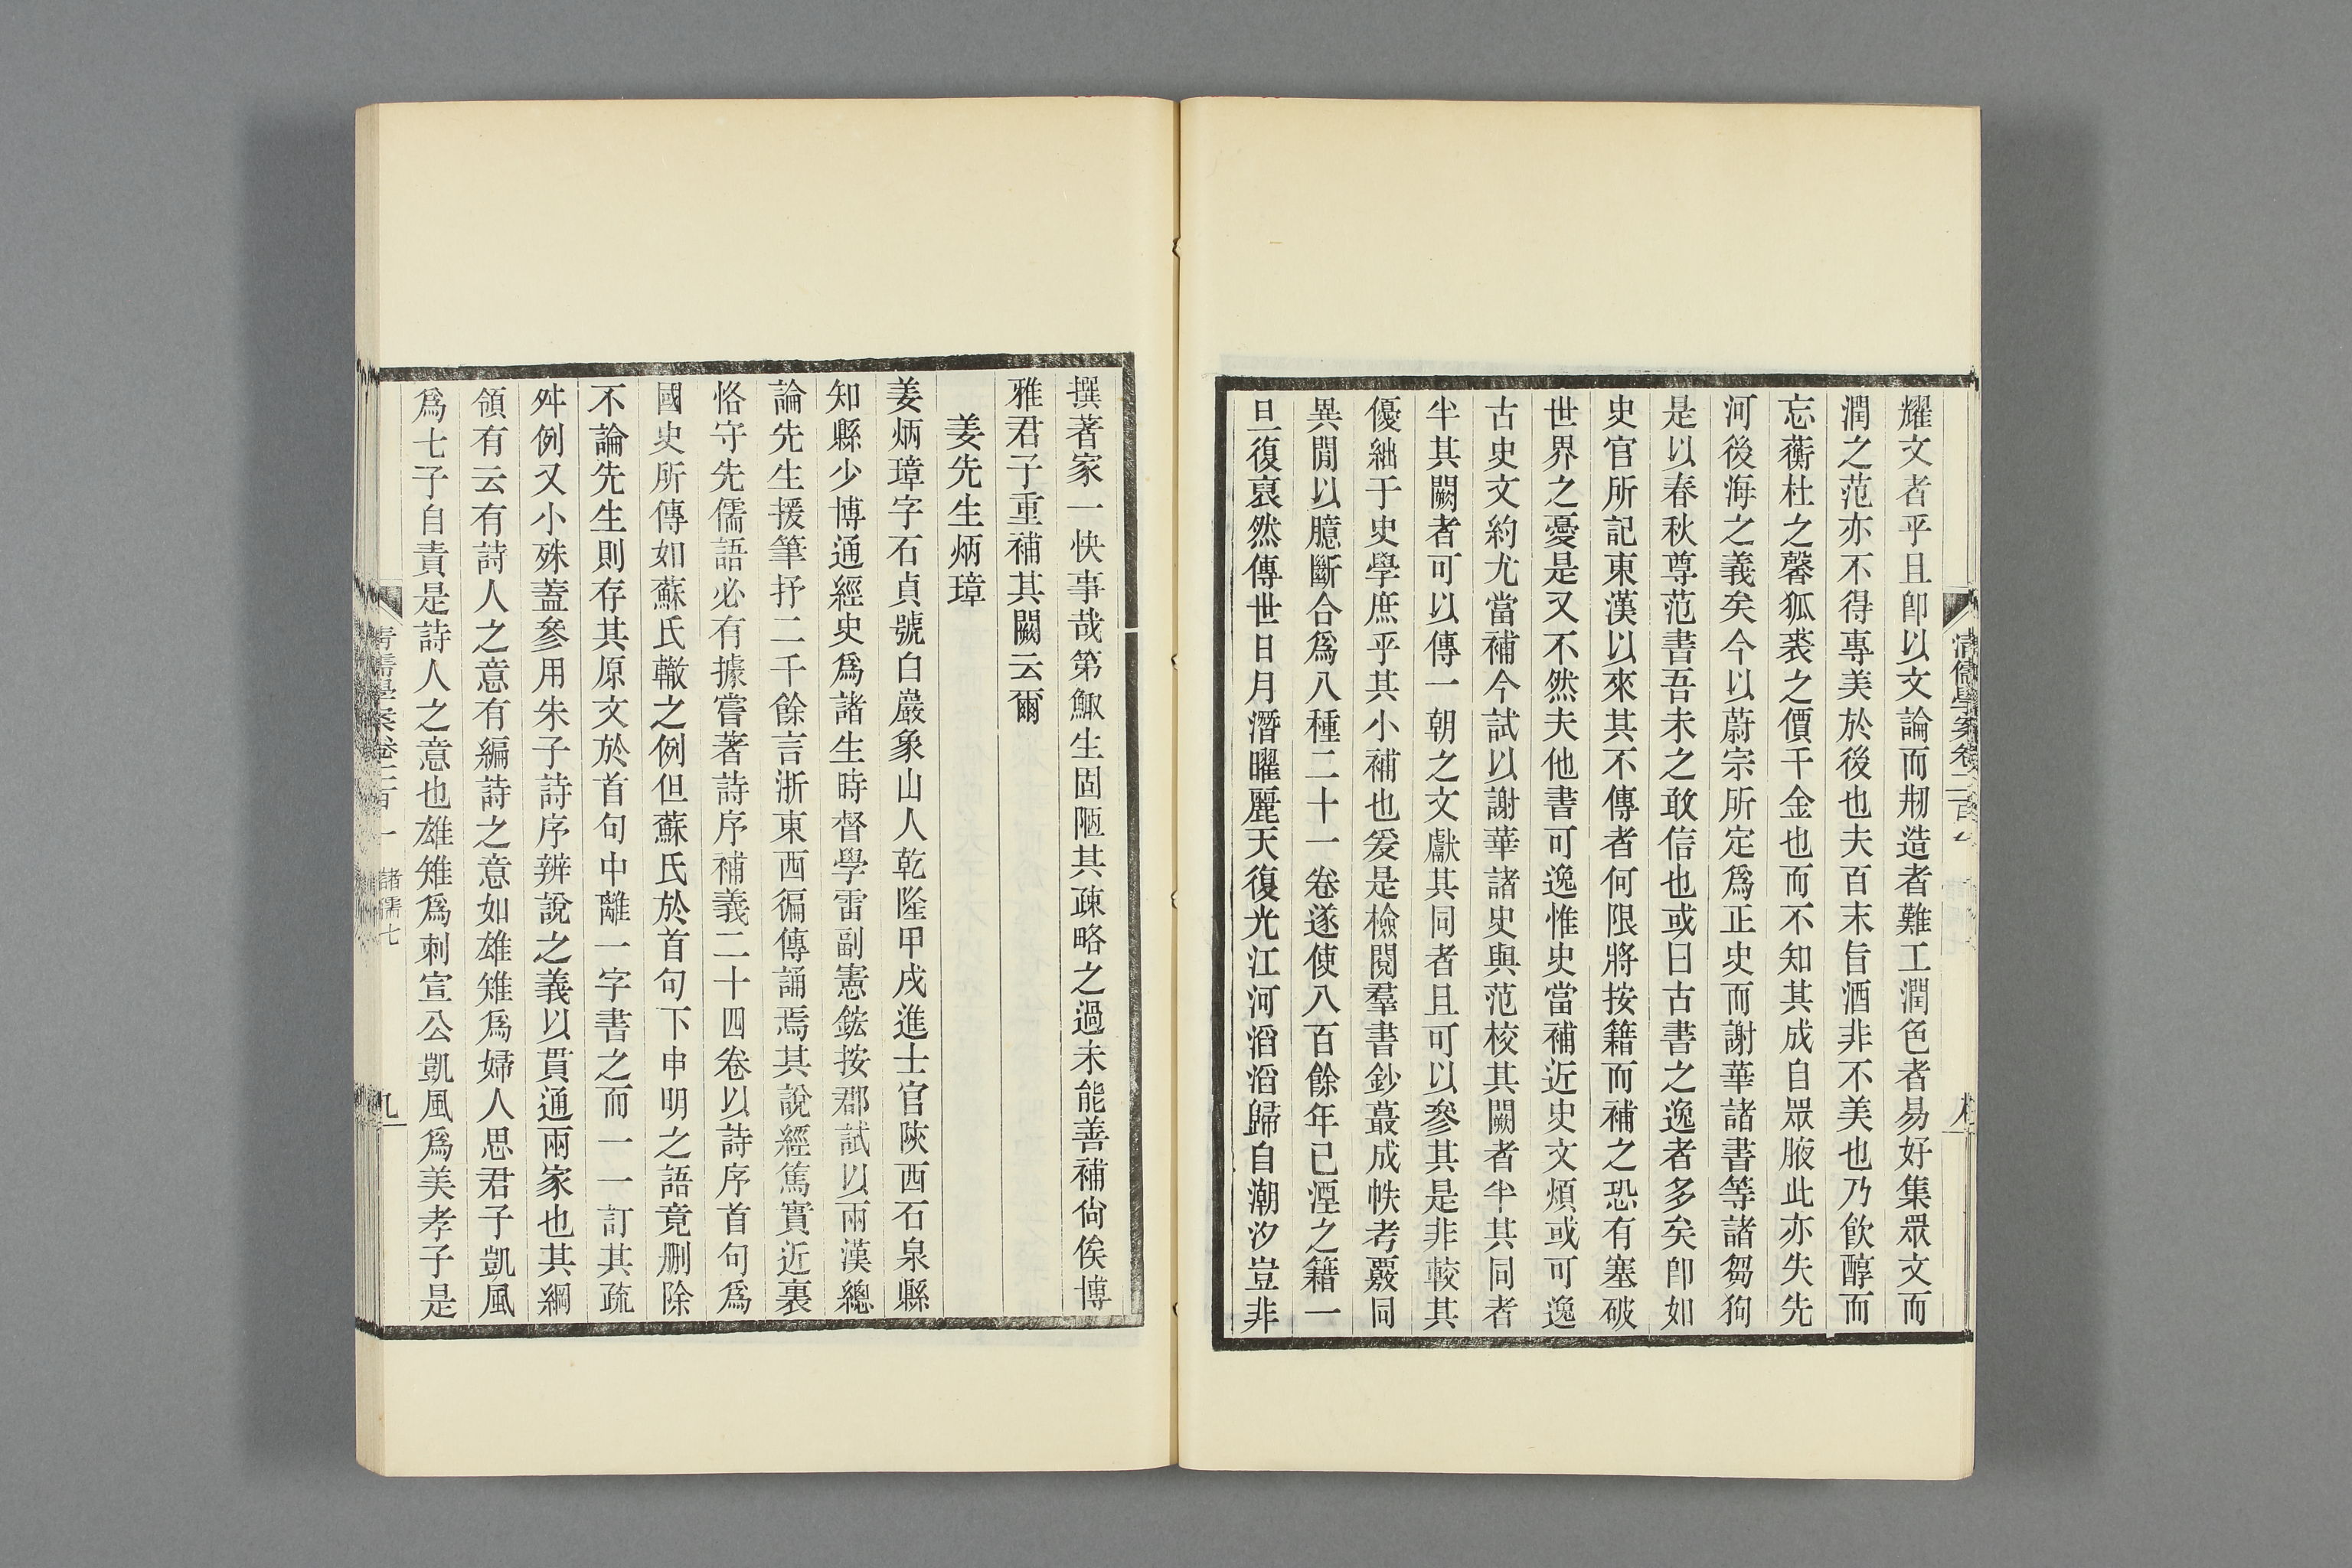 耀文者乎且卽以文論而剙造者難工潤色者易好集眾文而
潤之范亦不得專美於後也夫百末旨酒非不美也乃飮醇而
忘蘅杜之馨狐裘之價千金也而不知其成自眾腋此亦失先
河後海之義矣今以蔚宗所定爲正史而謝華諸書等諸芻狗
是以春秋尊范書吾未之敢信也或曰古書之逸者多矣卽如
史官所記東漢以來其不傳者何限將按籍而補之恐有塞破
世界之憂是又不然夫他書可逸惟史當補近史文煩或可逸
古史文約尤當補今試以謝華諸史與范校其闕者半其同者
半其闕者可以傳一朝之文獻其同者且可以參其是非較其
優紬于史學庶乎其小補也爰是檢閱羣書鈔蕞成帙考覈同
異閒以臆斷合爲八種二十一卷遂使八百餘年已湮之籍一
旦復裒然傳世日月潛曜麗天復光江河滔滔歸自潮汐豈非
撰著家一快事哉第鯫生固陋其疎略之過未能善補尙俟博
雅君子重補其闕云爾
姜先生炳璋
姜炳璋字石貞號白巖象山人乾隆甲戌進士官陝西石泉縣
知縣少博通經史爲諸生時督學雷副憲鋐按郡試以兩漢總
論先生援筆抒二千餘言浙東西徧傳誦焉其說經篤實近裏
恪守先儒語必有據嘗著詩序補義二十四卷以詩序首句爲
國史所傳如蘇氏轍之例但蘇氏於首句下申明之語竟刪除
不論先生則存其原文於首句中離一字書之而一一訂其疏
舛例又小殊蓋參用朱子詩序辨說之義以貫通兩家也其綱
領有云有詩人之意有編詩之意如雄雉爲婦人思君子凱風
爲七子自責是詩人之意也雄雉爲刺宣公凱風爲美孝子是
清儒學案卷二百一 諸儒七
九